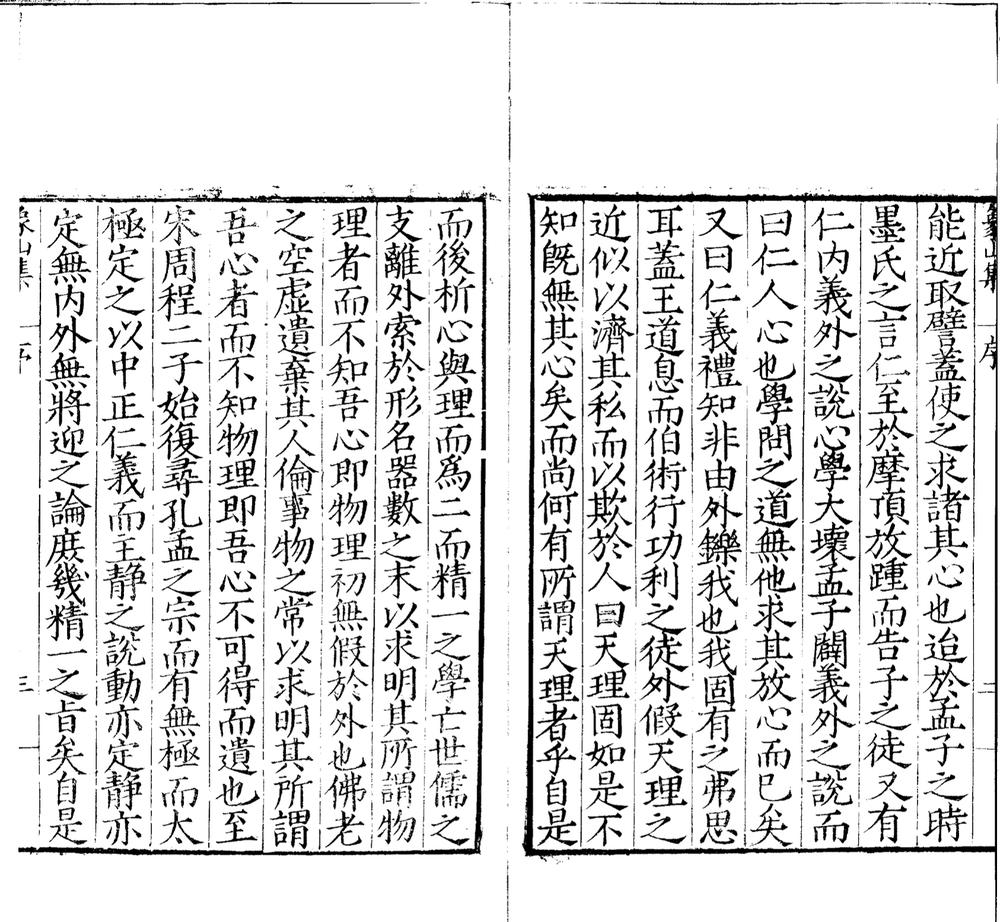 象山集 序 二
能近取譬蓋使之求諸其心也迨於孟子之時
墨氏之言仁至於摩頂放踵而告子之徒又有
仁内義外之說心學大壞孟子闢義外之說而
曰仁人心也學問之道無他求其放心而已矣
又曰仁義禮知非由外鑠我也我固有之弗思
耳蓋王道息而伯術行功利之徒外假天理之
近似以濟其私而以欺於人曰天理固如是不
知旣無其心矣而尚何有所謂天理者乎自是
而後析心與理而爲二而精一之學亡世儒之
支離外索於形名器數之末以求明其所謂物
理者而不知吾心即物理初無假於外也佛老
之空虛遺棄其人倫事物之常以求明其所謂
吾心者而不知物理即吾心不可得而遺也至
宋周程二子始復尋孔孟之宗而有無極而太
極定之以中正仁義而主静之說動亦定静亦
定無内外無將迎之論庶幾精一之旨矣自是
象山集 序 三